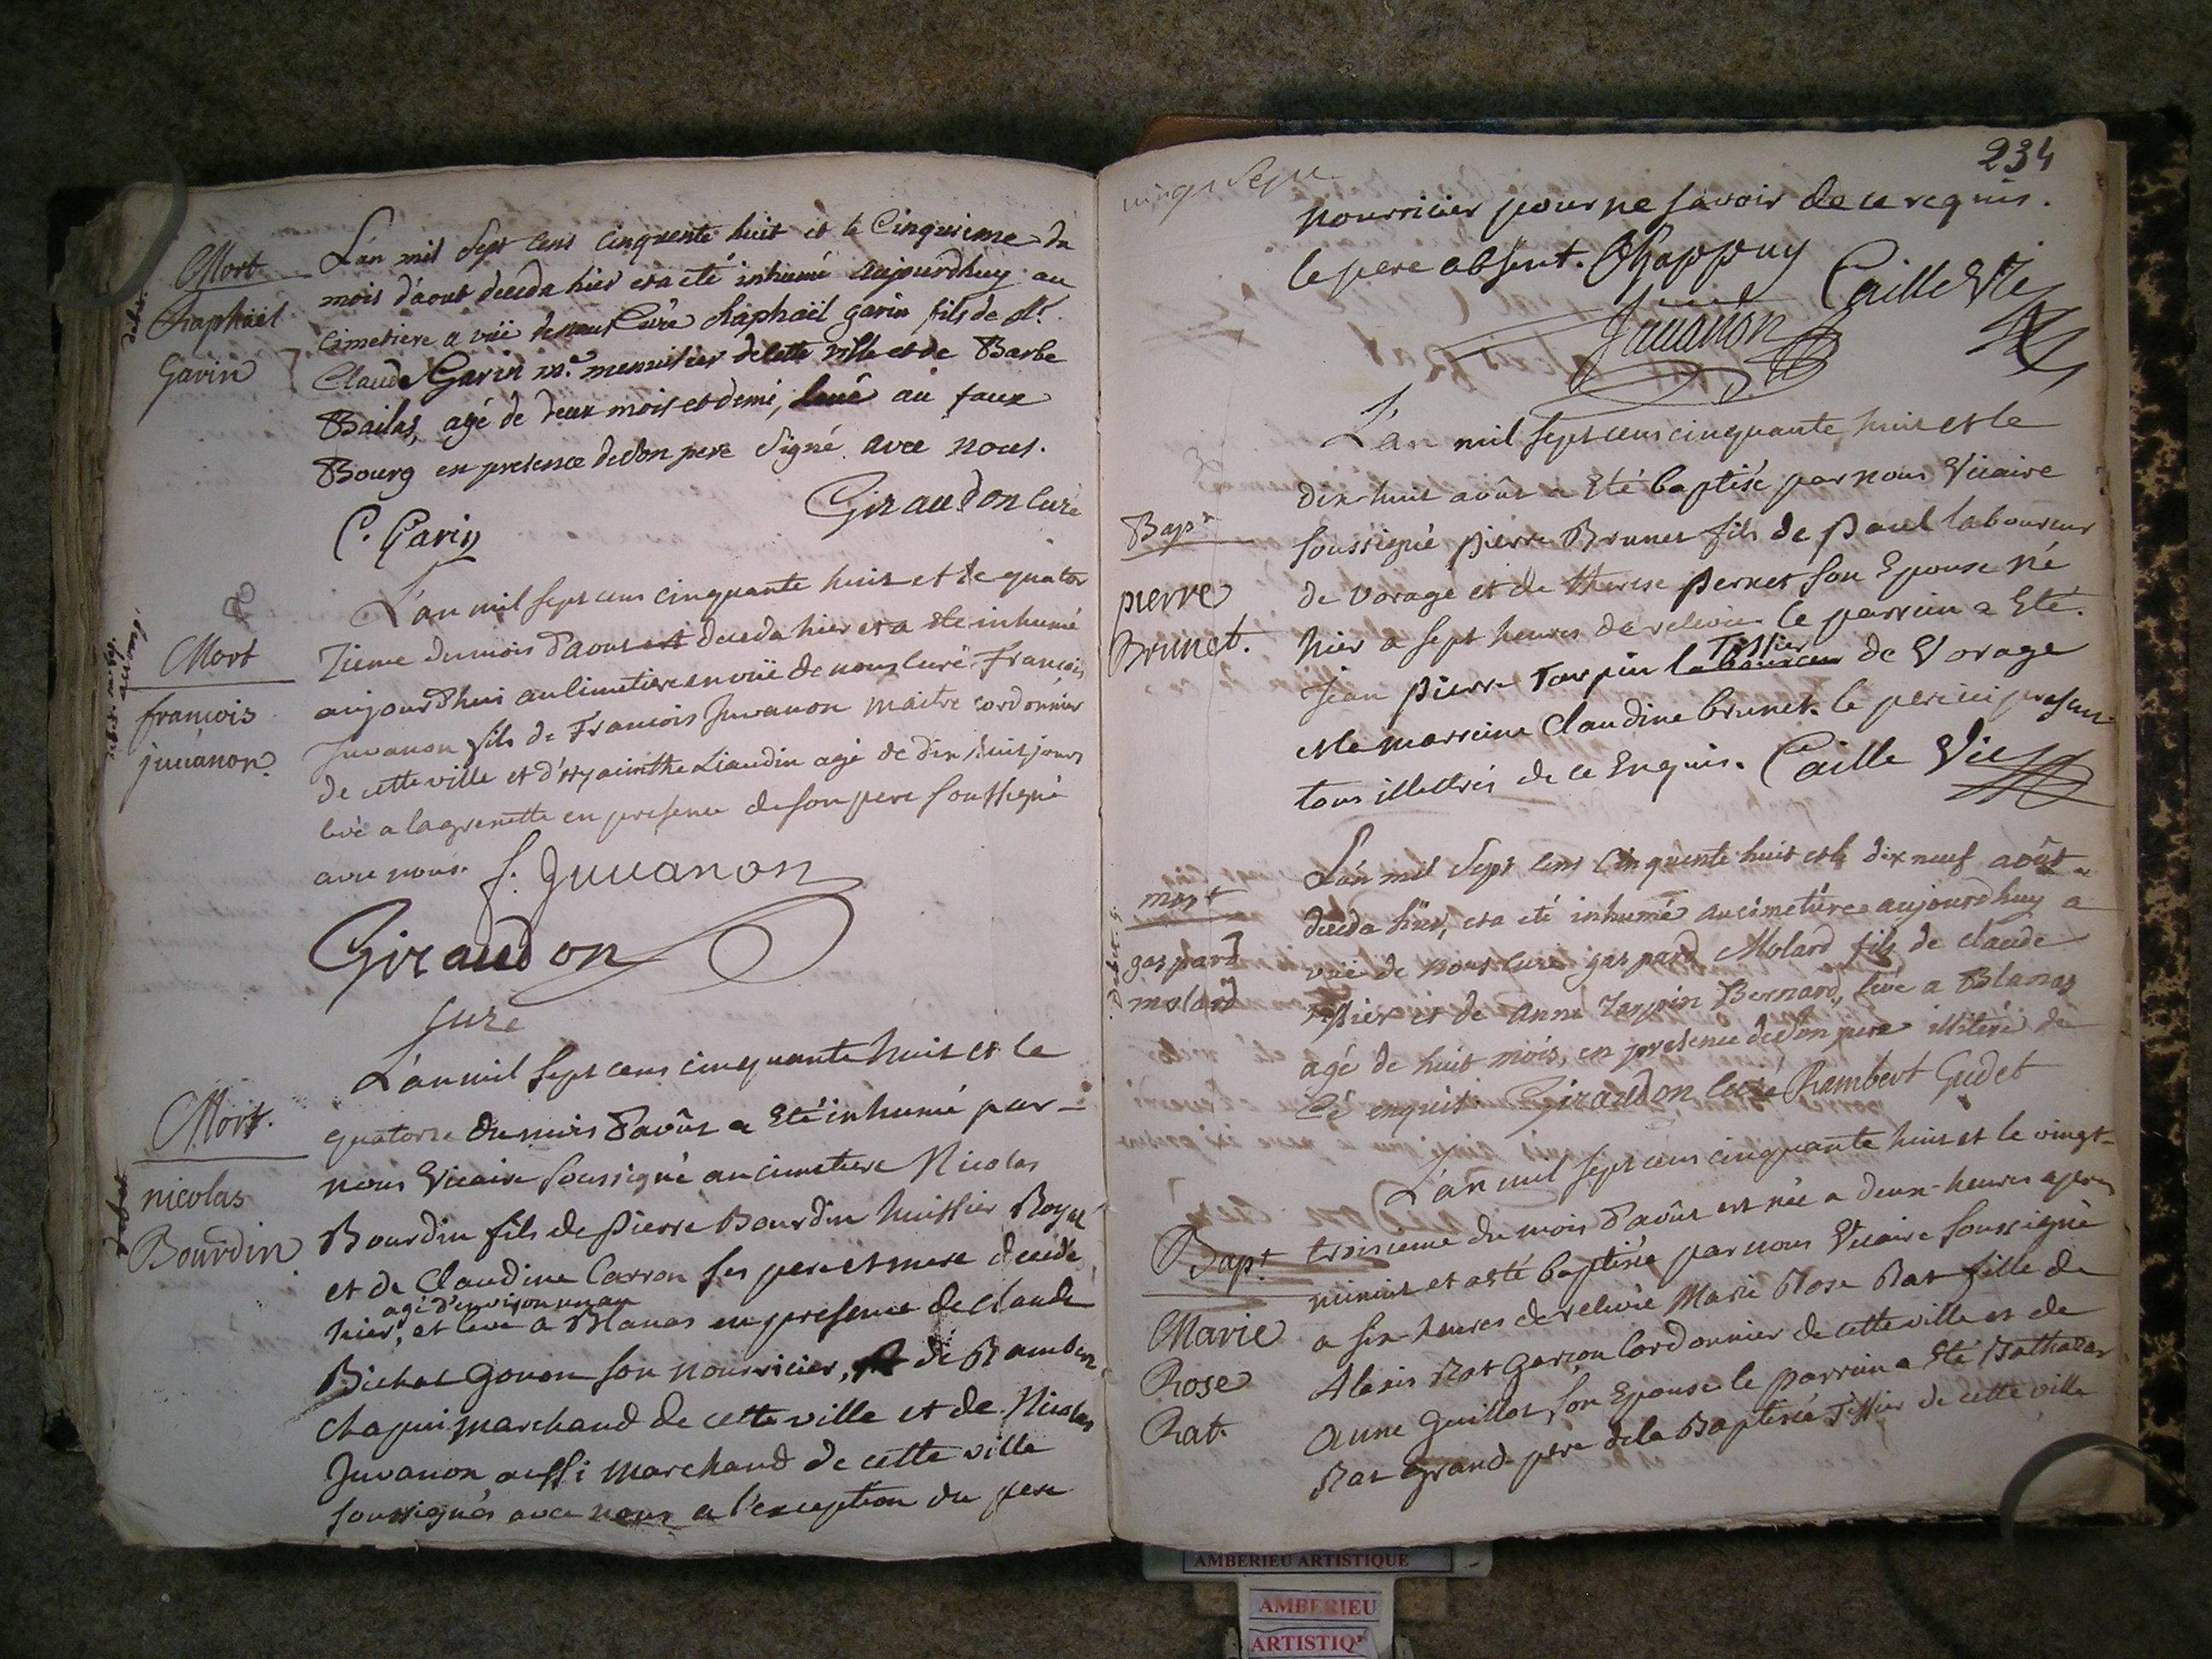 Mort
Raphaël
Garin
L'an mil sept cens cinquente huit et le Cinquieme du
mois d'aout deceda hier et a eté inhumé aujourdhuy au
cimetiere a vüe de nous Curé Raphaël garin fils de Sr.
Claude Garin me. menuisier de cette ville et de Barbe
Bailas, agé de deux mois et demi, levé au faux
Bourg en presence de son pere signé avec nous.
C. Garin
Giraudon Curé
Mort
francois
juvanon
L'an mil sept cens cinquante huit et le quator
zieme du mois d'aout deceda hier et a ete inhumé
aujourd'hui au cimetiere en vüe de nous curé Francois
Juvanon fils de Francois Juvanon maitre cordonnier
de cette ville et d'hyacinthe Liaudin agé de dix huit jours
levé a la grenette en presence de son pere soussigné
avec nous. f. Juvanon
Giraudon
Curé
Mort.
nicolas
Bourdin
L'an mil sept cens cinquante huit et le
quatorze du mois d'aôut a Eté inhumé par
nous Vicaire soussigné au cimetiere Nicolas
Bourdin fils de Pierre Bourdin huissier Royal
et de Claudine Carron ses pere et mere decedé
agé d'environ un an
hier, et levé a Blanas en presence de claude
Bichat gonon son nourricier, de Rambert
chapui marchand de cette ville et de Nicolas
Juvanon aussi marchand de cette ville
soussignés avec nous a l'exception du pere
234
vingt sept
nourricier pour ne savoir de ce requis.
le pere absent. Chappuy
Juvanon
Caille Vic
Bapt
pierre
Brunet.
L'an mil sept cens cinquante huit et le
dix-huit aôut a Eté baptisé par nous Vicaire
soussigné pierre Brunet fils de Paul laboureur
de Vorage et de therese pernet son Epouse né
hier a sept heures de relevée le parrein a Eté.
Tissier
Jean pierre Tarpin laboureur de Vorage
et la marreine Claudine brunet. le pere ici present
tous illettrés de ce Enquis. Caille Vic
mort
gaspard
molard
L'an mil sept cens cinquente huit et le dix neuf aôut
deceda hier, et a eté inhumé au cimetiere aujourdhuy a
vüe de nous curé gaspard Molard fils de claude
tissier et de anne Tarpin Bernard, levé a Blanas
agé de huit mois, en presence de son pere illiteré de
cé enquis. Giraudon Curé Rambert Gudet
Bapt
Marie
Rose
Rat.
L'an mil sept cens cinquante huit et le vingt-
troisieme du mois d'aôut est née a deux-heures apres
minuit et a eté baptisée par nous Vicaire soussigné
a six-heures de relevée Marie Rose Rat fille de
Alexis Rat garçon Cordonnier de cette ville et de
Anne Guillot son Epouse le parrein a Eté Balthazar
Rat grand-pere de la Baptisée Tissier de cette ville
AMBERIEU ARTISTIQUE
AMBERIEU
ARTISTIQ